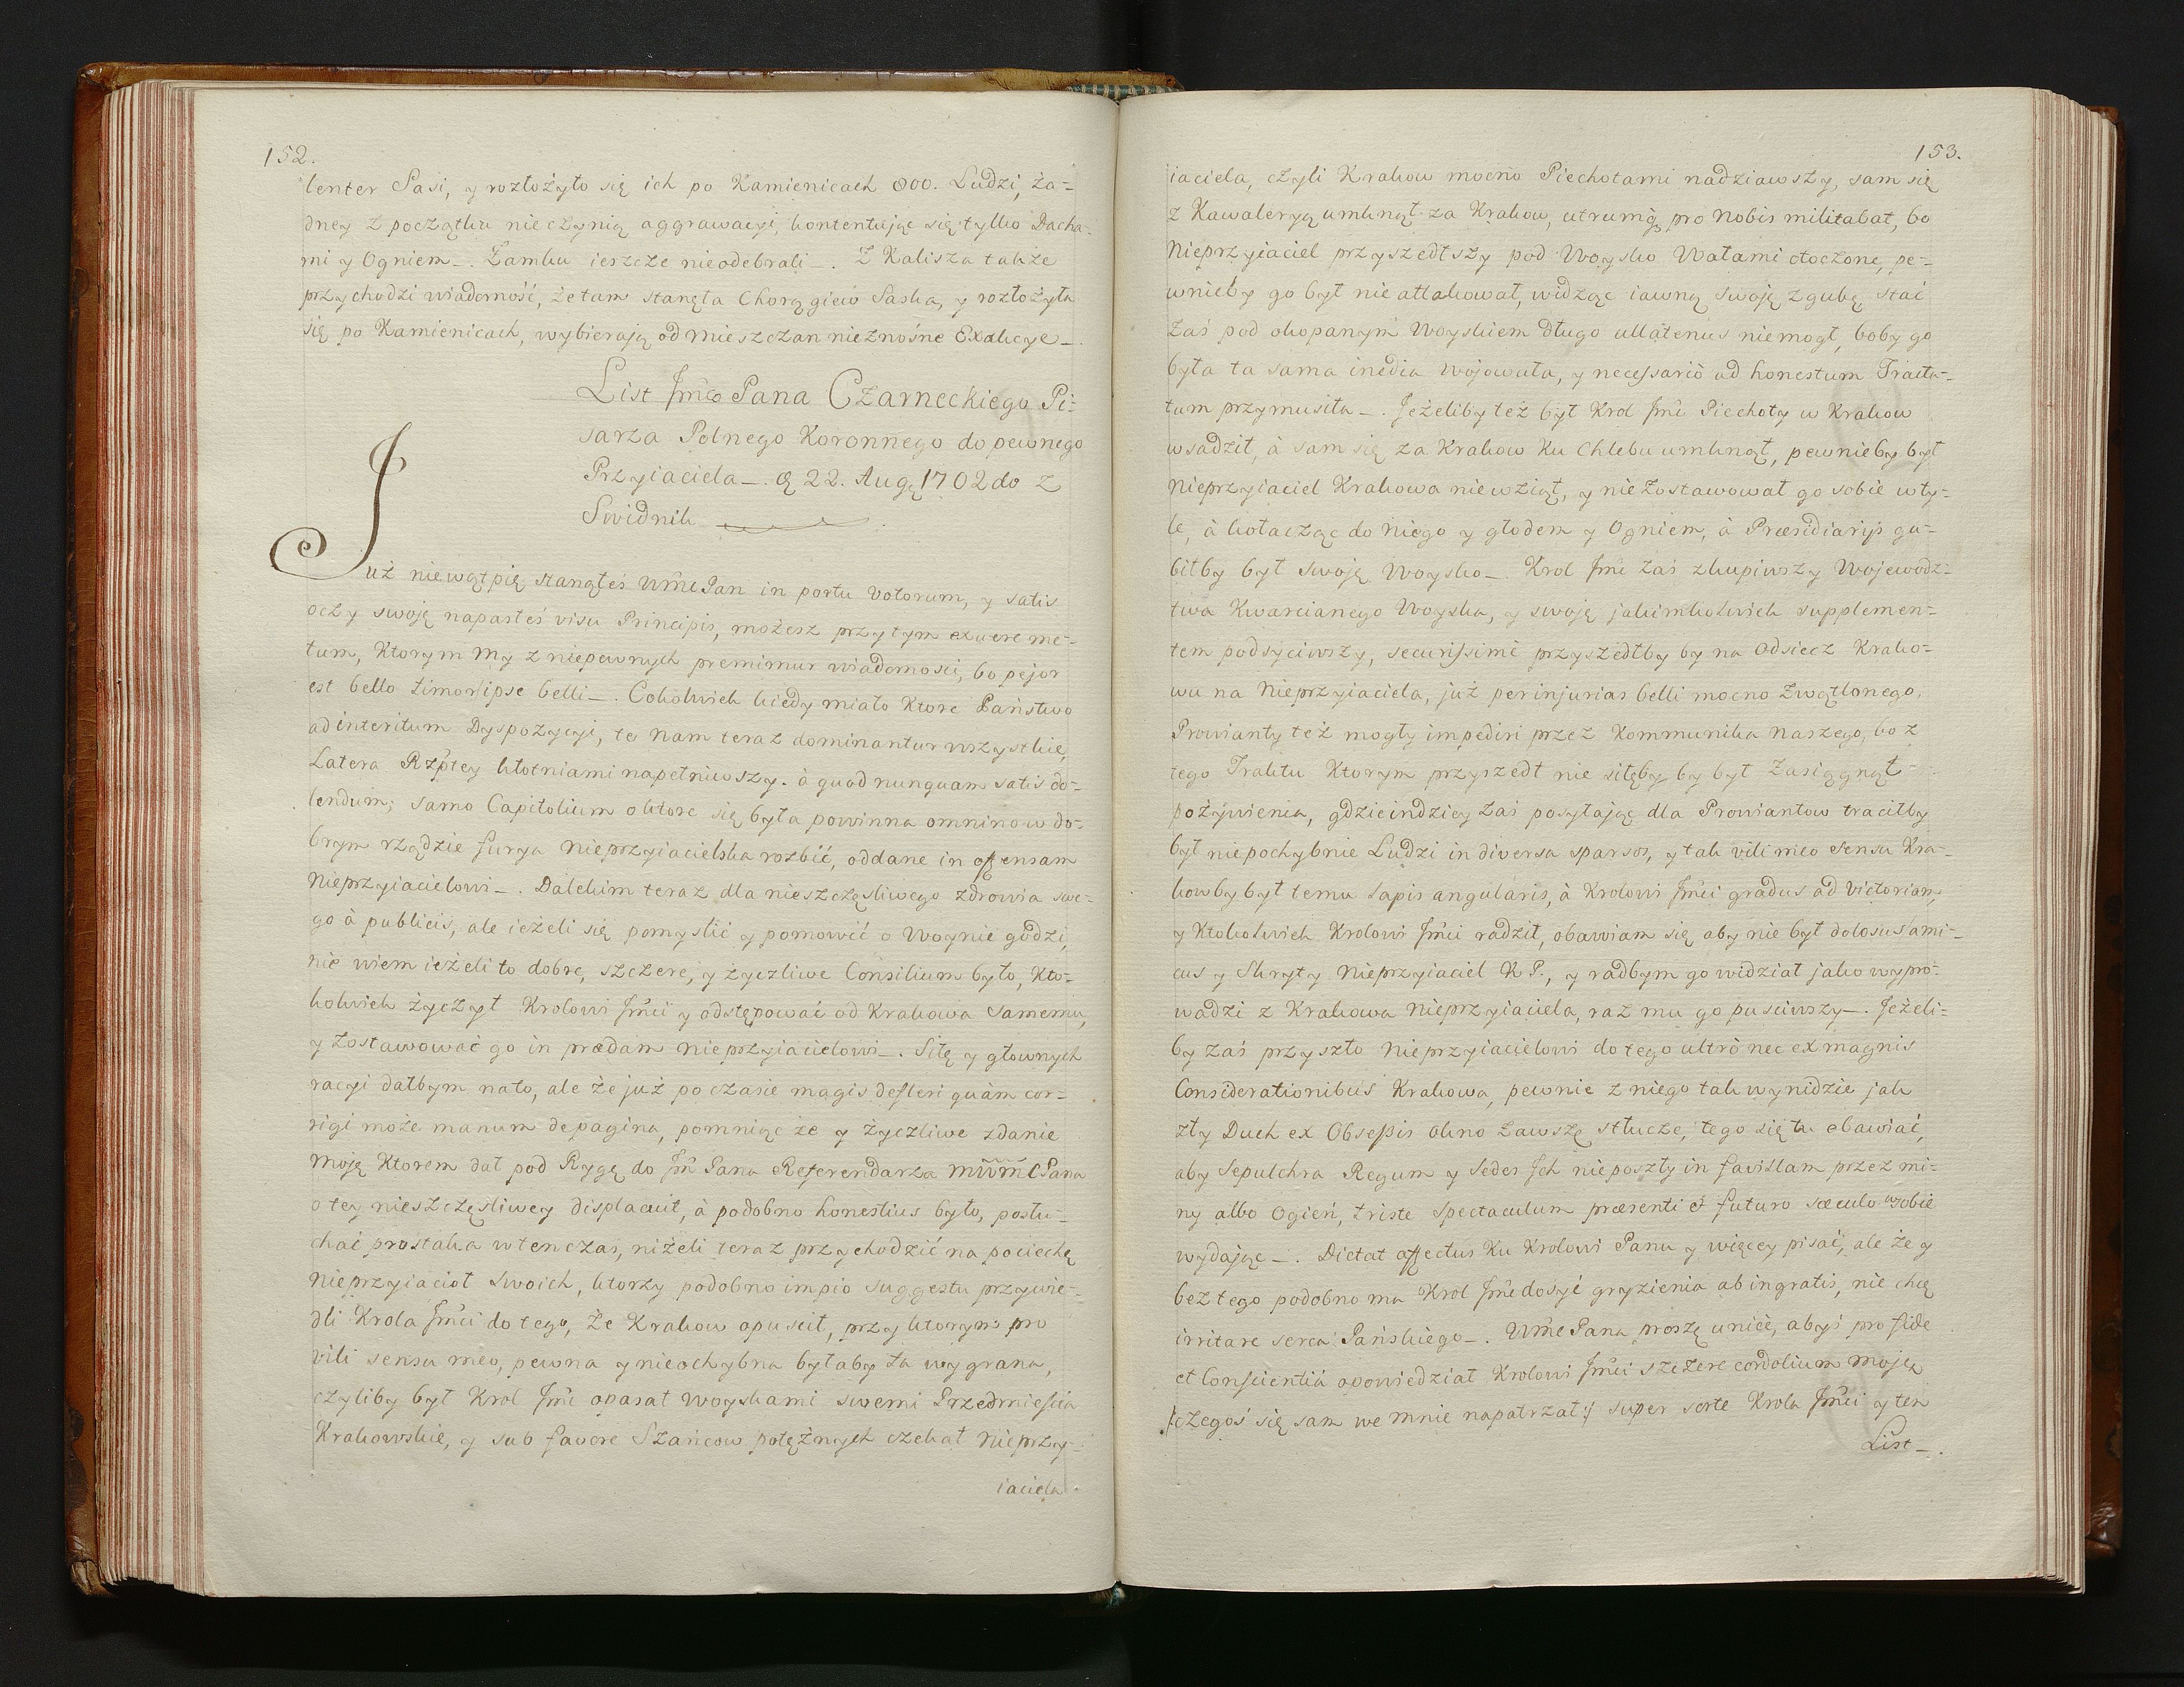 152.
lenter Sasi, y rozłożyło się ich po Kamienicach 800. Ludzi, ża-
dney z początku nie czynią aggrawacyi, kontentując się tylko Dacha-
mi y Ogniem_. Zamku ieszcze nieodebrali_. Z Kalisza także
przychodzi wiadomość, że tam stanęła Chorągiew Saska, y rozłożyła
się po Kamienicach, wybierają od Mieszczan nieznośne Exakcye_.
List Jmćo Pana Czarneckiego Pi-
sarza Polnego Koronnego do pewnego
Przyiaciela_. 22. Aug 1702 do z
Swidnik
Już niewątpię stanąłeś WmćPan in portu votorum, y satis
oczy swoję napasłeś visu Principis, możesz przytym exuere me-
tum, Ktorym my z niepewnych premimur wiadomosci, bo pejor
est bello timor ipse belli_. Cokolwiek kiedy miało Ktore Państwo
ad interitum Dyspozycyi, te nam teraz dominantur wszystkie,
Latera Rzptey kłotniami napełniwszy. à quod nunquam satis do-
lendum; samo Capitolium oktore się była powinna omnino w do-
brym rządzie furya Nieprzyiacielska rozbić, oddane in offensam
Nieprzyiacielowi_. Dalekim teraz dla nieszczęsliwego zdrowia swe-
go à publicis, ale ieżeli się pomyslić y pomowić o Woynie godzi,
nie wiem ieżeli to dobre, szczere, y życzliwe Consilium było, Kto-
kolwiek życzył Krolowi Jmći y odstępować od Krakowa samemu,
y zostawować go in prædam nieprzyiacielowi_. Siłę y głownych
racyi dałbym nato, ale że już po czasie magis defleri quàm cor-
rigi może manum de pagina, pomniąc że y życzliwe zdanie
moję Ktorem dał pod Rygę do Jm Pana Referendarza MWmCPana
o tey nieszczęsliwey displacuit, à podobno honestius było, posłu-
chać prostaka wtenczas, niżeli teraz przychodzić na pociechę
Nieprzyiacioł swoich, ktorzy podobno impio suggestu przywie-
dli Krola Jmći do tego, że Krakow opuscił, przy ktorym pro
vili sensu meo, pewna y nieochybna byłaby ta wygrana,
czyliby był Krol Jmć opasał woyskami swemi Przedmieścia
Krakowskie, y sub favore Szańcow potężnych czekał Nieprzy-
iaciela
153.
iaciela, czyli Krakow mocno Piechotami nadziawszy, sam się
z Kawaleryą umknął za Krakow, utrumq pro Nobis militabat, bo
Nieprzyiaciel przyszedłszy pod Woysko Wałami otoczone, pe-
wnieby go był nie attakował, widząc iawną swoję zgubę, stać
zaś pod okopanym Woyskiem długo ullatenus niemogł, boby go
była ta sama inedia wojowała, y necessariò ad honestum Tracta-
tum przymusiła_. Jeżeliby też był Krol Jmć Piechoty w Krakow
wsadził, à sam się za Krakow Ku Chlebu umknął, pewnieby był
Nieprzyiaciel Krakowa niewziął, y nie zostawował go sobie wty-
le, à kołacząc do niego y głodem y Ogniem, à Præsidiarijs gu-
biłby był swoję Woysko_. Krol Jmć zaś skupiwszy Wojewodz-
twa Kwarcianego Woyska, y swoję jakimkolwiek supplemen-
tem podsyciwszy, securissimè przyszedłby by na odsiecz Krako-
wu na Nieprzyiaciela, już per injurias belli mocno zwątlonego.
Prowianty też mogły impediri przez Kommunika naszego, bo z
tego Traktu Ktorym przyszedł nie siłęby by był zasiągnął
pożywienia, gdzieindziey zaś posyłając dla Prowiantow traciłby
był niepochybnie Ludzi in diversa sparsos, y tak vili meo sensu Kra-
kowby był temu lapis angularis, à Krolowi Jmći gradus ad victoriam,
y Ktokolwiek Krolowi Jmći radził, obawiam się aby nie był dolosus ami-
cus y skryty Nieprzyiaciel R P., y radbym go widział jako wypro-
wadzi z Krakowa Nieprzyiaciela, raz mu go pusciwszy_. Jeżeli-
by zaś przyszło Nieprzyiacielowi do tego ultrò nec ex magnis
Considerationibus Krakowa, pewnie z niego tak wynidzie jak
zły Duch ex Obsessis okno zawsze stłucze, tego się tu obawiać,
aby Sepulchra Regum y Sedes Jch nieposzły in favillam przez mi-
ny albo Ogień, triste spectaculum præsenti et futuro sæculo wsobie
wydając_. Dictat affectus Ku Krolowi Panu y więcey pisać, ale że y
bez tego podobno ma Krol Jmć dosyć gryzienia ab ingratis, nie chcę
irritare serca Pańskiego_. WmćPana proszę unicè, abyś pro fide
et Conscientiâ opowiedział Krolowi Jmći szczere cordolium moję
/:czegoś się sam we mnie napatrzał:/ super sorte Krola Jmći y ten
List_.